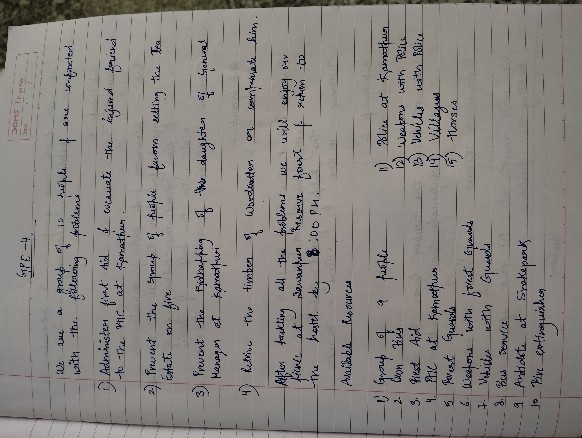 GPE-4
We are a group of people & are confronted
with the following problems
1) Administer first Aid & evacuate the injured
to the PHC at Ramathur.
2) Prevent the group of people from setting the Tea
Estate on fire
3) Prevent the Kidnapping of the daughter of
Manager at Ramathur
4) Retrieve the timber of or compensate him.
After tackling all the problems we will enjoy our
at Reserve forest & return to
the hostel by 8:00 PM.
Available Resources
1) Group of 9 people
2. Own Bus
3. First Aid
4. PHC at Ramathur
5. Forest Guards
6. Weapons with forest Guards
7. Vehicles with Guards
8. Bus Service
9. Antidote at Snakepark
10. Fire extinguisher
11) Police at Ramathur
12) Weapons with Police
13) Vehicles with Police
14) Villagers
15) Horses